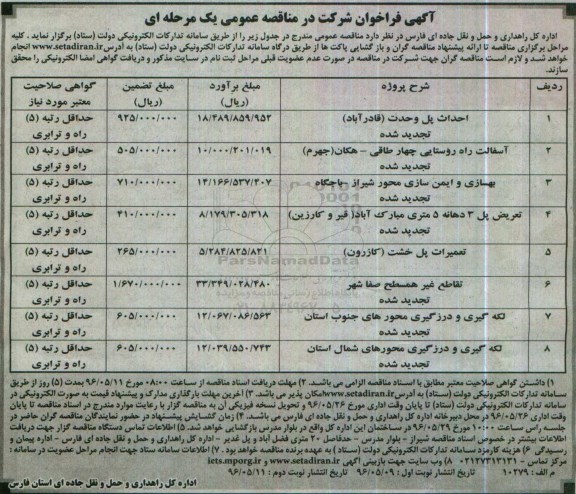 آگهی فراخوان شرکت در مناقصه عمومی یک مرحله ای
اداره کل راهداری و حمل و نقل جاده ای فارس در نظر دارد مناقصه عمومی مندرج در جدول زیر را از طریق سامانه تدارکات الکترونیکی دولت (ستاد) برگزار نماید . کلیه
مراحل برگزاری مناقصه تا ارائه پیشنهاد مناقصه گران و باز گشایی پاکت ها از طریق درگاه سامانه تدارکات الکترونیکی دولت (ستاد) به آدرس www.setadiran.ir انجام
خواهد شد و لازم است مناقصه گران جهت شرکت در مناقصه در صورت عدم عضویت قبلی مراحل ثبت نام در سایت مذکور و دریافت گواهی امضا الکترونیکی را محقق
سازند.
ردیف شرح پروژه مبلغ برآورد (ریال) مبلغ تضمین (ریال) گواهی صلاحیت معتبر مورد نیاز
۱ احداث پل وحدت (قادرآباد) تجدید شده ۱۸/۳۸۹/۸۵۹/۹۵۲ ۹۲۵/۰۰۰/۰۰۰ حداقل رتبه (۵) راه و ترابری
۲ آسفالت راه روستایی چهار طاقی – هکان(جهرم) تجدید شده ۱۰/۰۰۰/۲۰۱/۰۱۹ ۵۰۵/۰۰۰/۰۰۰ حداقل رتبه (۵) راه و ترابری
۳ بهسازی و ایمن سازی محور شیراز –باجگاه تجدید شده ۱۴/۱۶۶/۵۳۷/۴۰۷ ۷۱۰/۰۰۰/۰۰۰ حداقل رتبه (۵) راه و ترابری
۴ تعریض پل ۳ دهانه ۵ متری مبارک آباد( قیر و کارزین) تجدید شده ۸/۱۷۹/۳۰۵/۳۱۸ ۴۱۰/۰۰۰/۰۰۰ حداقل رتبه (۵) راه و ترابری
۵ تعمیرات پل خشت (کازرون) ۵/۲۸۴/۸۲۵/۸۲۱ ۲۶۵/۰۰۰/۰۰۰ حداقل رتبه (۵) راه و ترابری
۶ تقاطع غیر همسطح صفا شهر تجدید شده ۳۳/۳۴۹/۰۲۸/۴۸۰ ۱/۶۷۰/۰۰۰/۰۰۰ حداقل رتبه (۵) راه و ترابری
۷ لکه گیری و درزگیری محور های جنوب استان تجدید شده ۱۲/۰۶۷/۰۸۶/۵۶۳ ۶۰۵/۰۰۰/۰۰۰ حداقل رتبه (۵) راه و ترابری
۸ لکه گیری و درزگیری محورهای شمال استان تجدید شده ۱۲/۰۳۹/۵۵۰/۷۴۳ ۶۰۵/۰۰۰/۰۰۰ حداقل رتبه (۵) راه و ترابری
ParsNamadData
۱) داشتن گواهی صلاحیت معتبر مطابق با اسناد مناقصه الزامی می باشد. ۲) مهلت دریافت اسناد مناقصه از ساعت ۰۸:۰۰ مورخ ۹۶/۰۵/۱۱ بمدت (۵) روز از طریق
سامانه تدارکات الکترونیکی دولت (ستاد) به آدرس www.setadiran.ir امکان پذیر می باشد. ۳) آخرین مهلت بارگذاری مدارک و پیشنهاد قیمت به صورت الکترونیکی در
سامانه تدارکات الکترونیکی دولت (ستاد) تا پایان وقت اداری مورخ ۹۶/۰۵/۲۶ و تحویل نسخه فیزیکی آن به مناقصه گزار با رعایت موارد مندرج در اسناد مناقصه تا پایان
وقت اداری ۹۶/۰۵/۲۶ در محل دبیرخانه اداره کل راهداری و حمل و نقل جاده ای فارس می باشد. ۴) زمان گشایش پیشنهاد در حضور نمایندگان مناقصه گران حاضر در
جلسه راس ساعت ۱۰:۰۰ مورخ ۹۶/۰۵/۲۹ در ساختمان این اداره کل واقع در بلوار مدرس بازگشایی خواهد شد. ۵) اطلاعات تماس دستگاه مناقصه گزار جهت دریافت
اطلاعات بیشتر در خصوص اسناد مناقصه شیراز - بلوار مدرس - حدفاصل ۲۰ متری فضل آباد و پل غدیر - اداره کل راهداری و حمل و نقل جاده ای فارس - اداره پیمان و
رسیدگی ۶) هزینه کارمزد سامانه تدارکات الکترونیکی دولت (ستاد ) به عهده برنده مناقصه خواهد بود . ۷) اطلاعات سامانه ستاد جهت انجام مراحل عضویت در سامانه :
۰۲۱۲۷۳۱۳۱۳۱ ۸) وب سایت جهت بازبینی آگهی www.setadiran.ir و iets.mporg.ir
م الف : ۱۰۲۷۹ تاریخ انتشار نوبت اول : ۹۶/۰۵/۰۹ تاریخ انتشار نوبت دوم : ۹۶/۰۵/۱۱
اداره کل راهداری و حمل و نقل جاده ای استان فارس